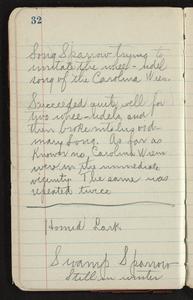 32
Song Sparrow trying to
imitate the wheel-udel
song of the Carolina Wren.
Succeeded quite well for
two wheel-udels, and
then broke into his ord-
inary song. As far as
known no Carolina Wrens
were in the immediate
vicinity. The same was
repeated twice
Horned Lark
Swamp Sparrow
Still in winter